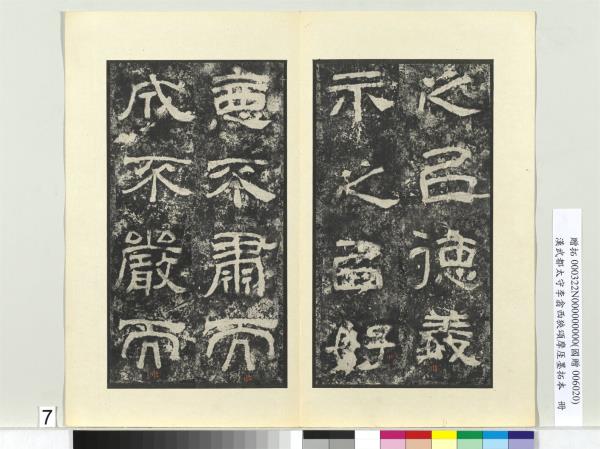 之以德義
示之以好
惡不肅而
成不嚴而
贈拓 000322N000000000(國贈 006020)
漢武都太守李翕西狹頌摩厓墨拓本 冊
7